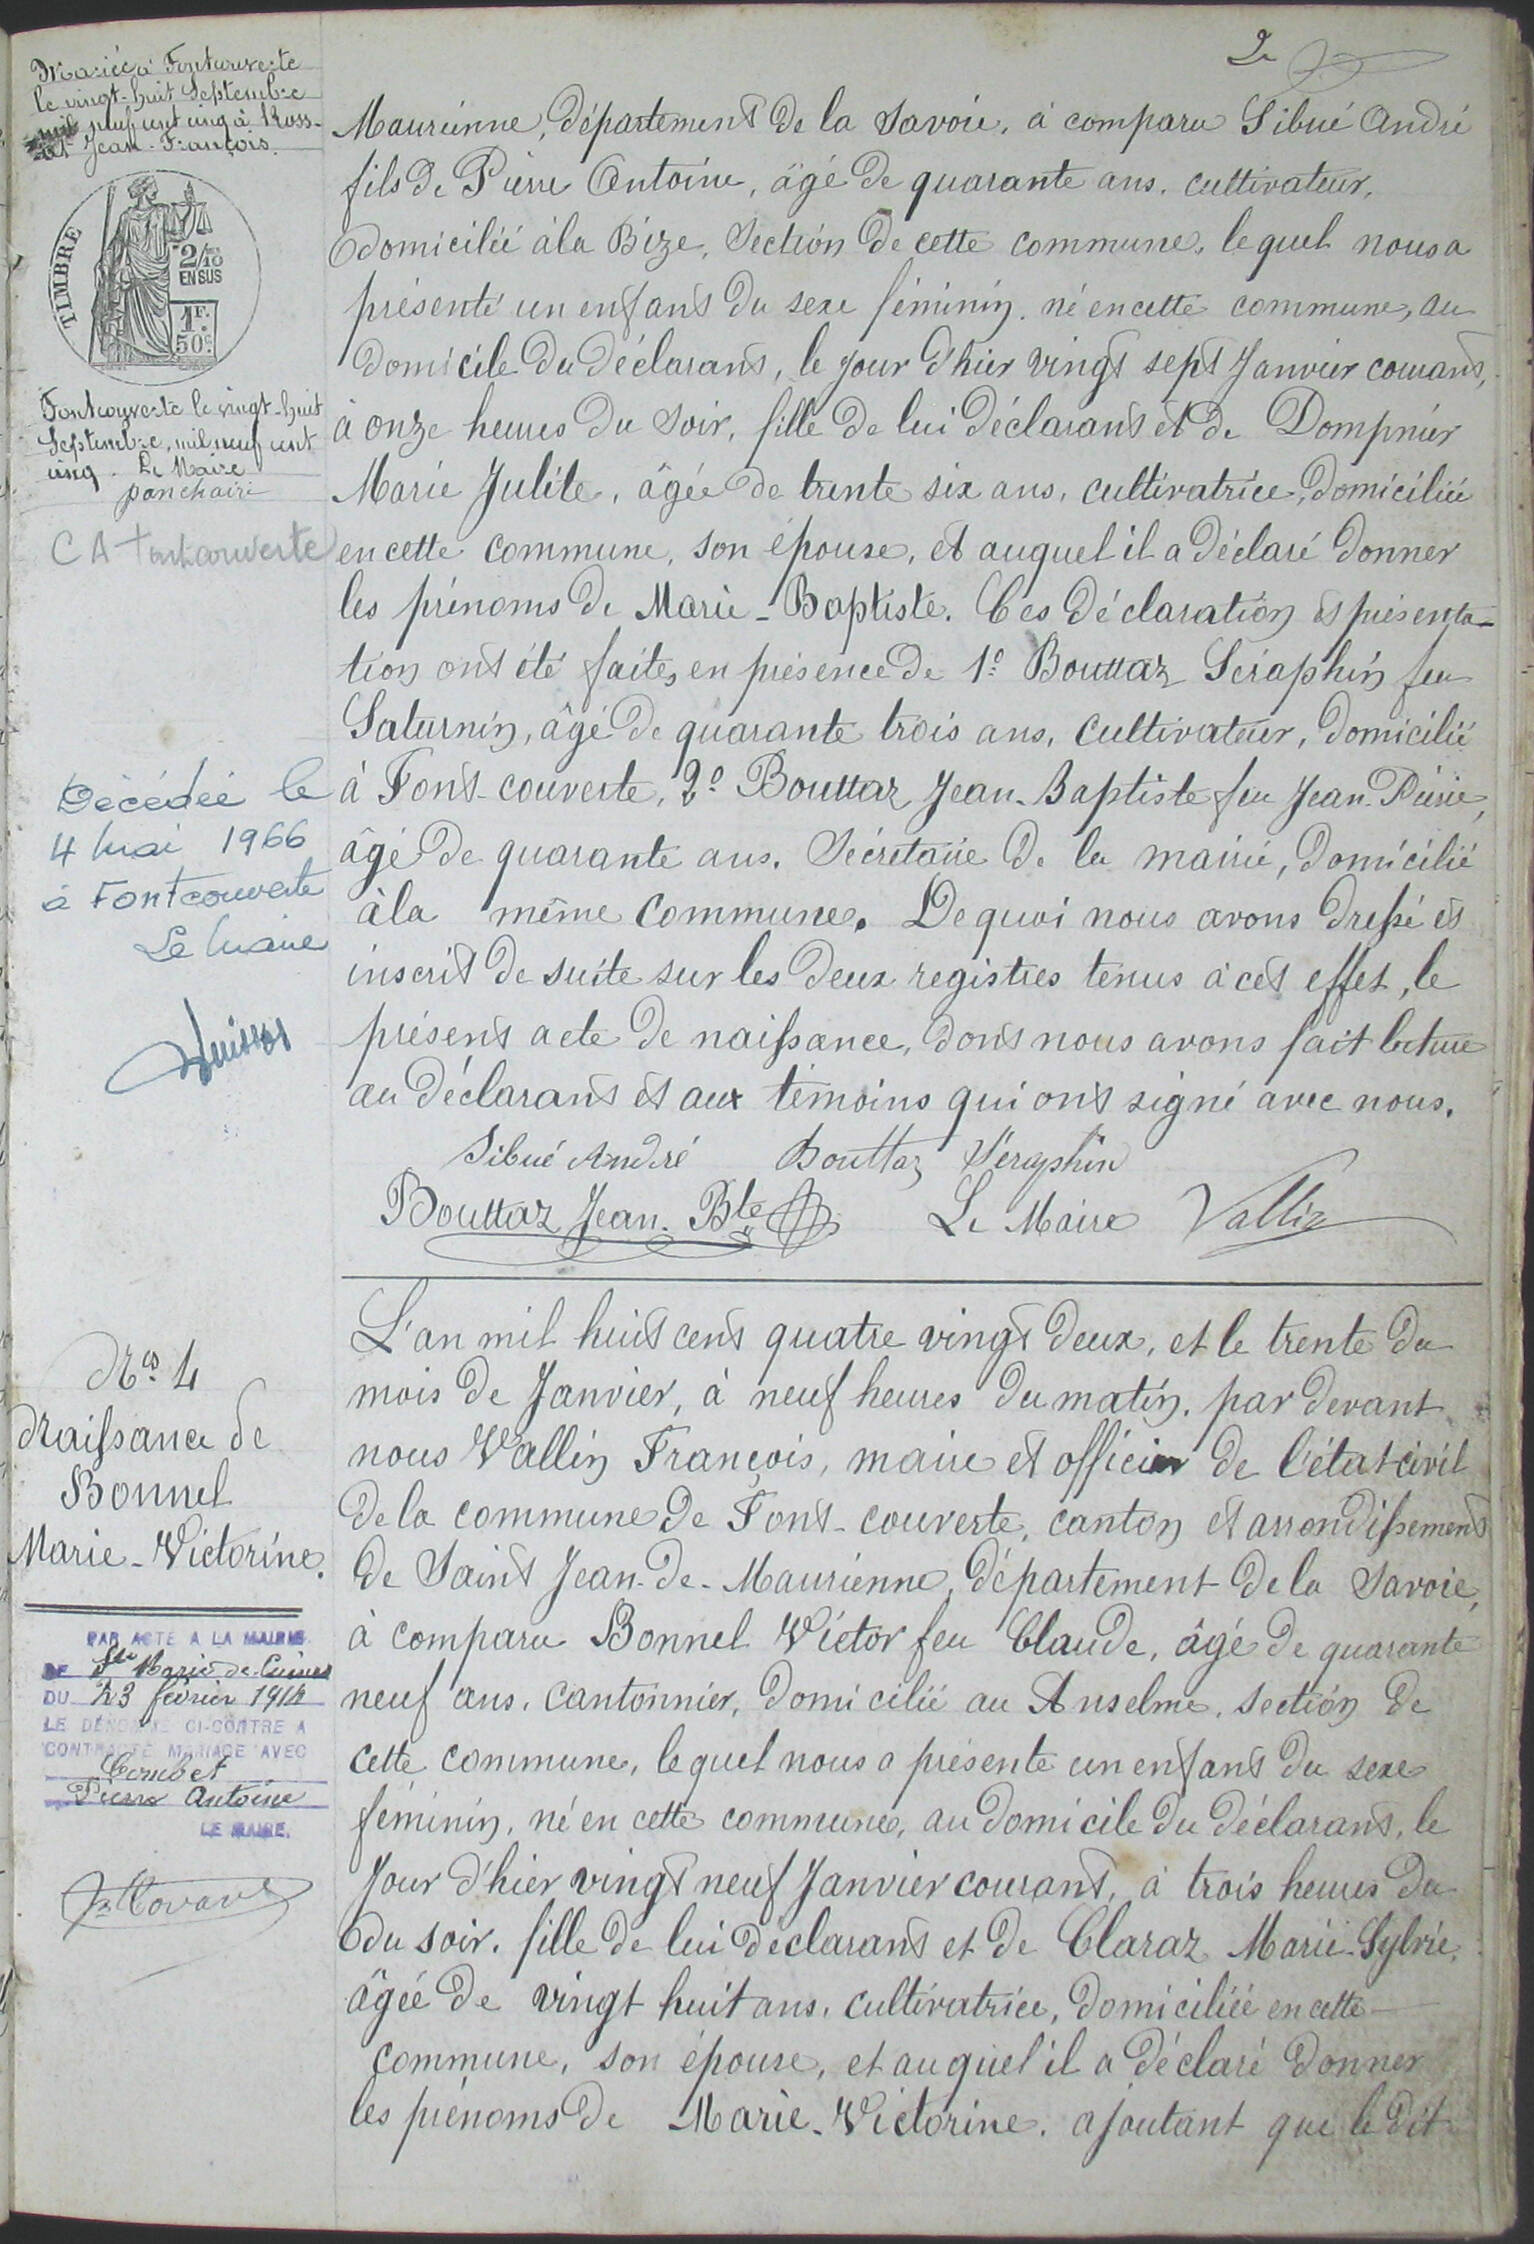 2
Mariée à Fontcouverte
le vingt-huit Septembre
mil neuf cent cinq à Ross-
at Jean-François.
TIMBRE
2/10
EN SUS
1F.
50c.
Fontcouverte le vingt-huit
Septembre, mil neuf cent
cinq. Le Maire
CA Fontcouverte
Décédée le
4 Mai 1966
à Fontcouverte
Le Maire
Maurienne, département de la Savoie, a comparu Sibué André
fils de Pierre Antoine, âgé de quarante ans, cultivateur,
domicilié à la Bize, Section de cette commune, lequel nous a
présenté un enfant du sexe féminin, né en cette commune, au
domicile du déclarant, le jour d'hier vingt sept Janvier courant,
à onze heures du soir, fille de lui déclarant et de Dompnier
Marie Julite, âgée de trente six ans, cultivatrice, domiciliée
en cette commune, son épouse, et auquel il a déclaré donner
les prénoms de Marie-Baptiste. Ces déclaration et présenta-
tion ont été faites en présence de 1º Bouttaz Séraphin feu
Saturnin, âgé de quarante trois ans, cultivateur, domicilié
à Font-couverte, 2º Bouttaz Jean-Baptiste feu Jean-Pierre,
âgé de quarante ans, Sécrétaire de la mairie, domicilié
à la même commune. De quoi nous avons dressé et
inscrit de suite sur les deux registres tenus à cet effet, le
présent acte de naissance, dont nous avons fait lecture
au déclarant et aux témoins qui ont signé avec nous.
Sibué André Bouttaz Séraphin
Bouttaz Jean-Bte Le Maire Vallin
Nº 4
Naissance de
Bonnel
Marie-Victorine.
PAR ACTE A LA MAIRIE
DE Ste Marie-de-Cuines
DU 23 février 1914
LE DÉNOMMÉ CI-CONTRE A
CONTRACTÉ MARIAGE AVEC
Combet
Pierre Antoine
LE MAIRE.
L'an mil huit cent quatre vingt deux, et le trente du
mois de Janvier, à neuf heures du matin, par devant
nous Vallin François, maire et officier de l'état civil
de la commune de Font-couverte, canton et arrondissement
de Saint Jean-de-Maurienne, département de la Savoie,
à comparu Bonnel Victor feu Claude, âgé de quarante
neuf ans, cantonnier, domicilié au Anselme, section de
cette commune, lequel nous a présenté un enfant du sexe
féminin, né en cette commune, au domicile du déclarant, le
jour d'hier vingt neuf Janvier courant, à trois heures du
du soir, fille de lui déclarant et de Claraz Marie-Sylvie,
âgée de vingt huit ans, cultivatrice, domiciliée en cette
commune, son épouse, et auquel il a déclaré donner
les prénoms de Marie-Victorine, ajoutant que le dit